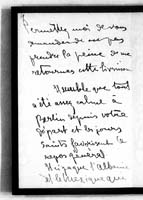 Permettez moi de vous
demander de ne pas
prendre la peine de me
retourner cette livraison
Il semble que tout
a été assez calme à
partir depuis votre
départ et les jours
saints favorisent le
repos général
et le Mexique que